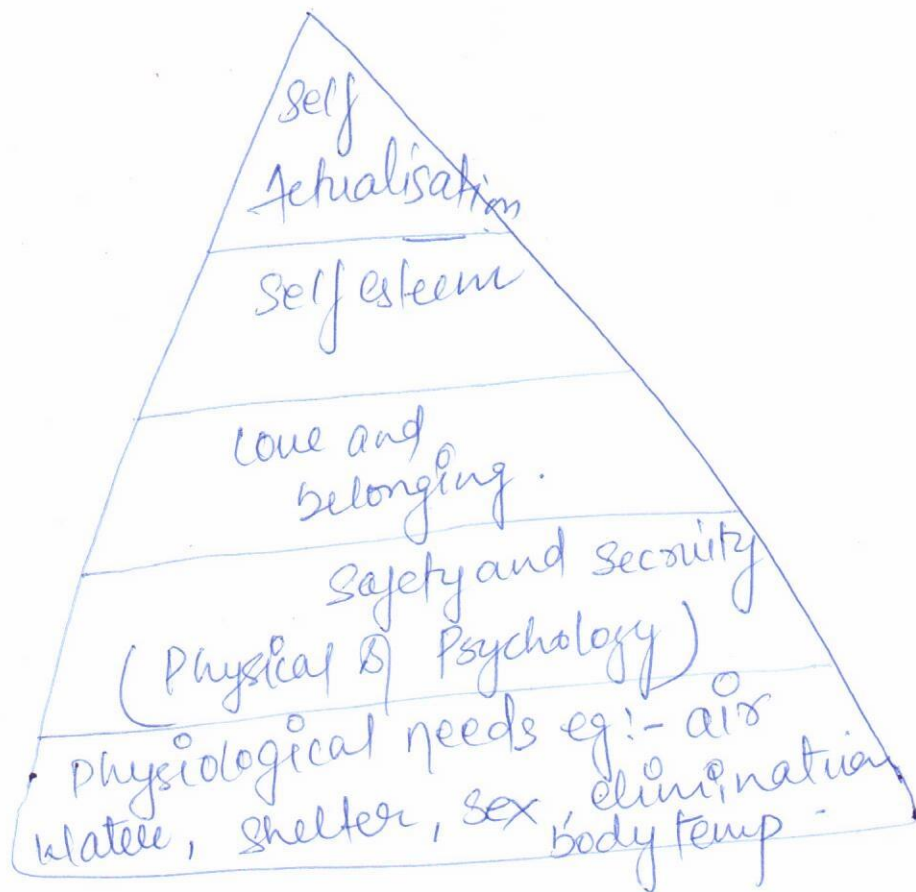 Self
Actualisation
Self esteem
Love and
belonging.
Safety and Secruity
(Physical & Psychology)
Physiological needs eg:- air
Water, Shelter, Sex, elimination
body temp.